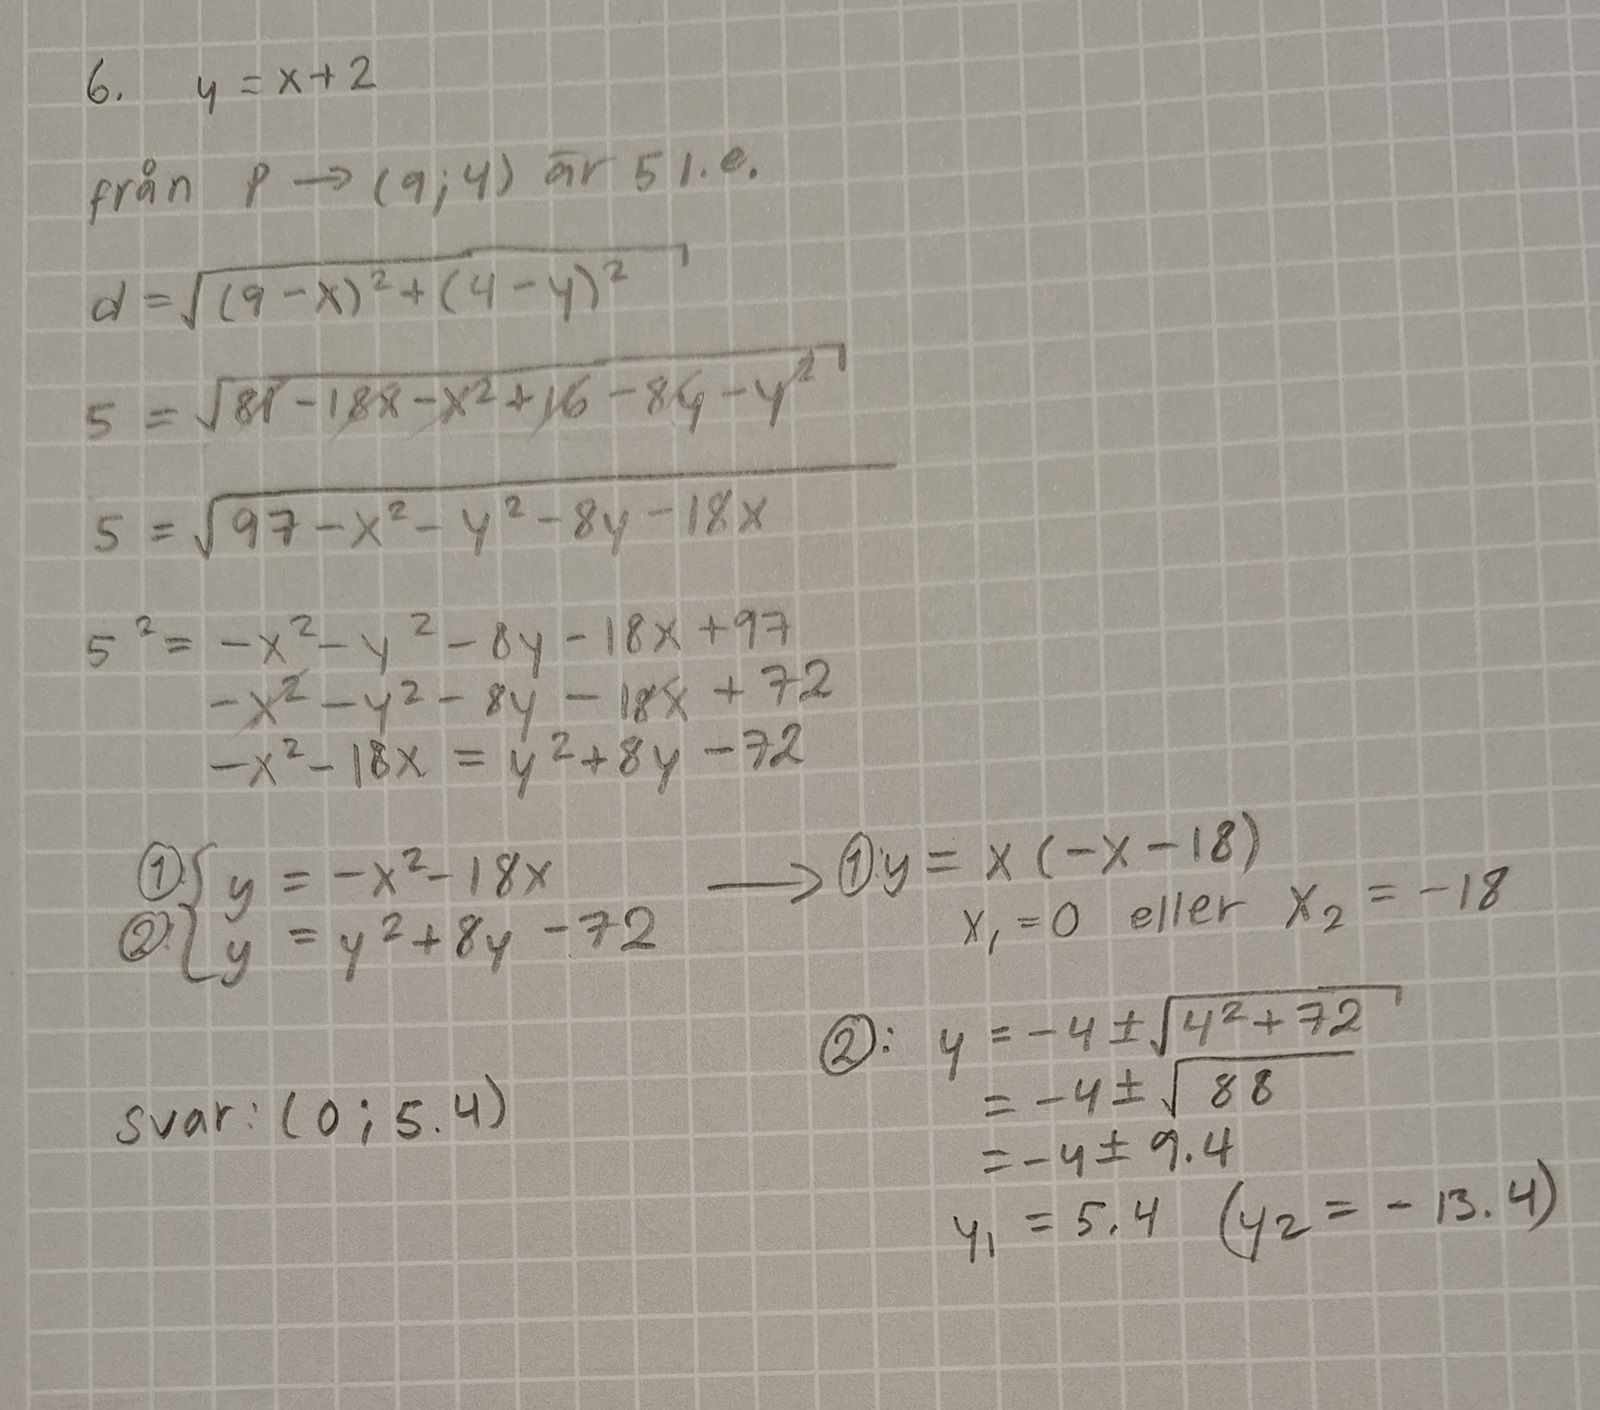 6. y = x+2
från P → (9;4) är 5 l.e.
d = √(9-x)² + (4-y)²
5 = √81-18x-x²+16-8y-y²
5 = √97-x²-y²-8y-18x
5² = -x²-y²-8y-18x+97
-x²-y²-8y-18x+72
-x²-18x = y²+8y-72
①{ y = -x²-18x
②{ y = y²+8y-72
→ ①:y = x(-x-18)
x₁=0 eller x₂ = -18
②: y = -4±√4²+72
= -4±√88
= -4±9.4
y₁ = 5.4 (y₂ = -13.4)
svar: (0; 5.4)